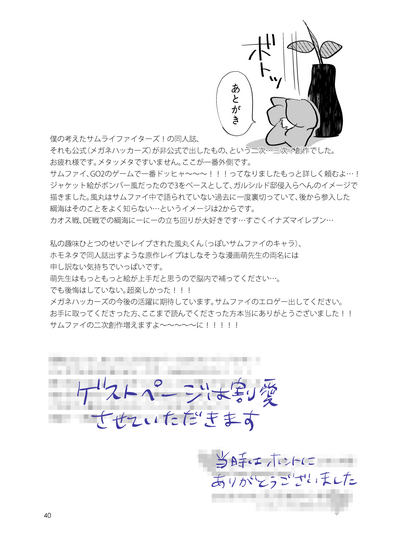 ボトッ
あとがき
僕の考えたサムライファイターズ！の同人誌、
それも公式(メガネハッカーズ)が非公式で出したもの、という二次…三次？創作でした。
お疲れ様です。メタッメタですいません。ここが一番外側です。
サムファイ、GO2のゲームで一番ドッヒャ～～～！！！ってなりましたもっと詳しく頼むよ…！
ジャケット絵がボンバー風だったので3をベースとして、ガルシルド邸侵入らへんのイメージで
描きました。風丸はサムファイ中で語られていない過去に一度裏切っていて、後から参入した
綱海はそのことをよく知らない…というイメージは2からです。
カオス戦、DE戦での綱海にーにーの立ち回りが大好きです…すごくイナズマイレブン…
私の趣味ひとつのせいでレイプされた風丸くん(っぽいサムファイのキャラ)、
ホモネタで同人誌出すような原作レイプはしなそうな漫画萌先生の両名には
申し訳ない気持ちでいっぱいです。
萌先生はもっともっと絵が上手だと思うので脳内で補ってください…。
でも後悔はしていない。超楽しかった！！！
メガネハッカーズの今後の活躍に期待しています。サムファイのエロゲー出してください。
お手に取ってくださった方、ここまで読んでくださった方本当にありがとうございました！！
サムファイの二次創作増えますよ～～～～～に！！！！！
ゲストページは割愛
させていただきます
当時はホントに
ありがとうございました
40